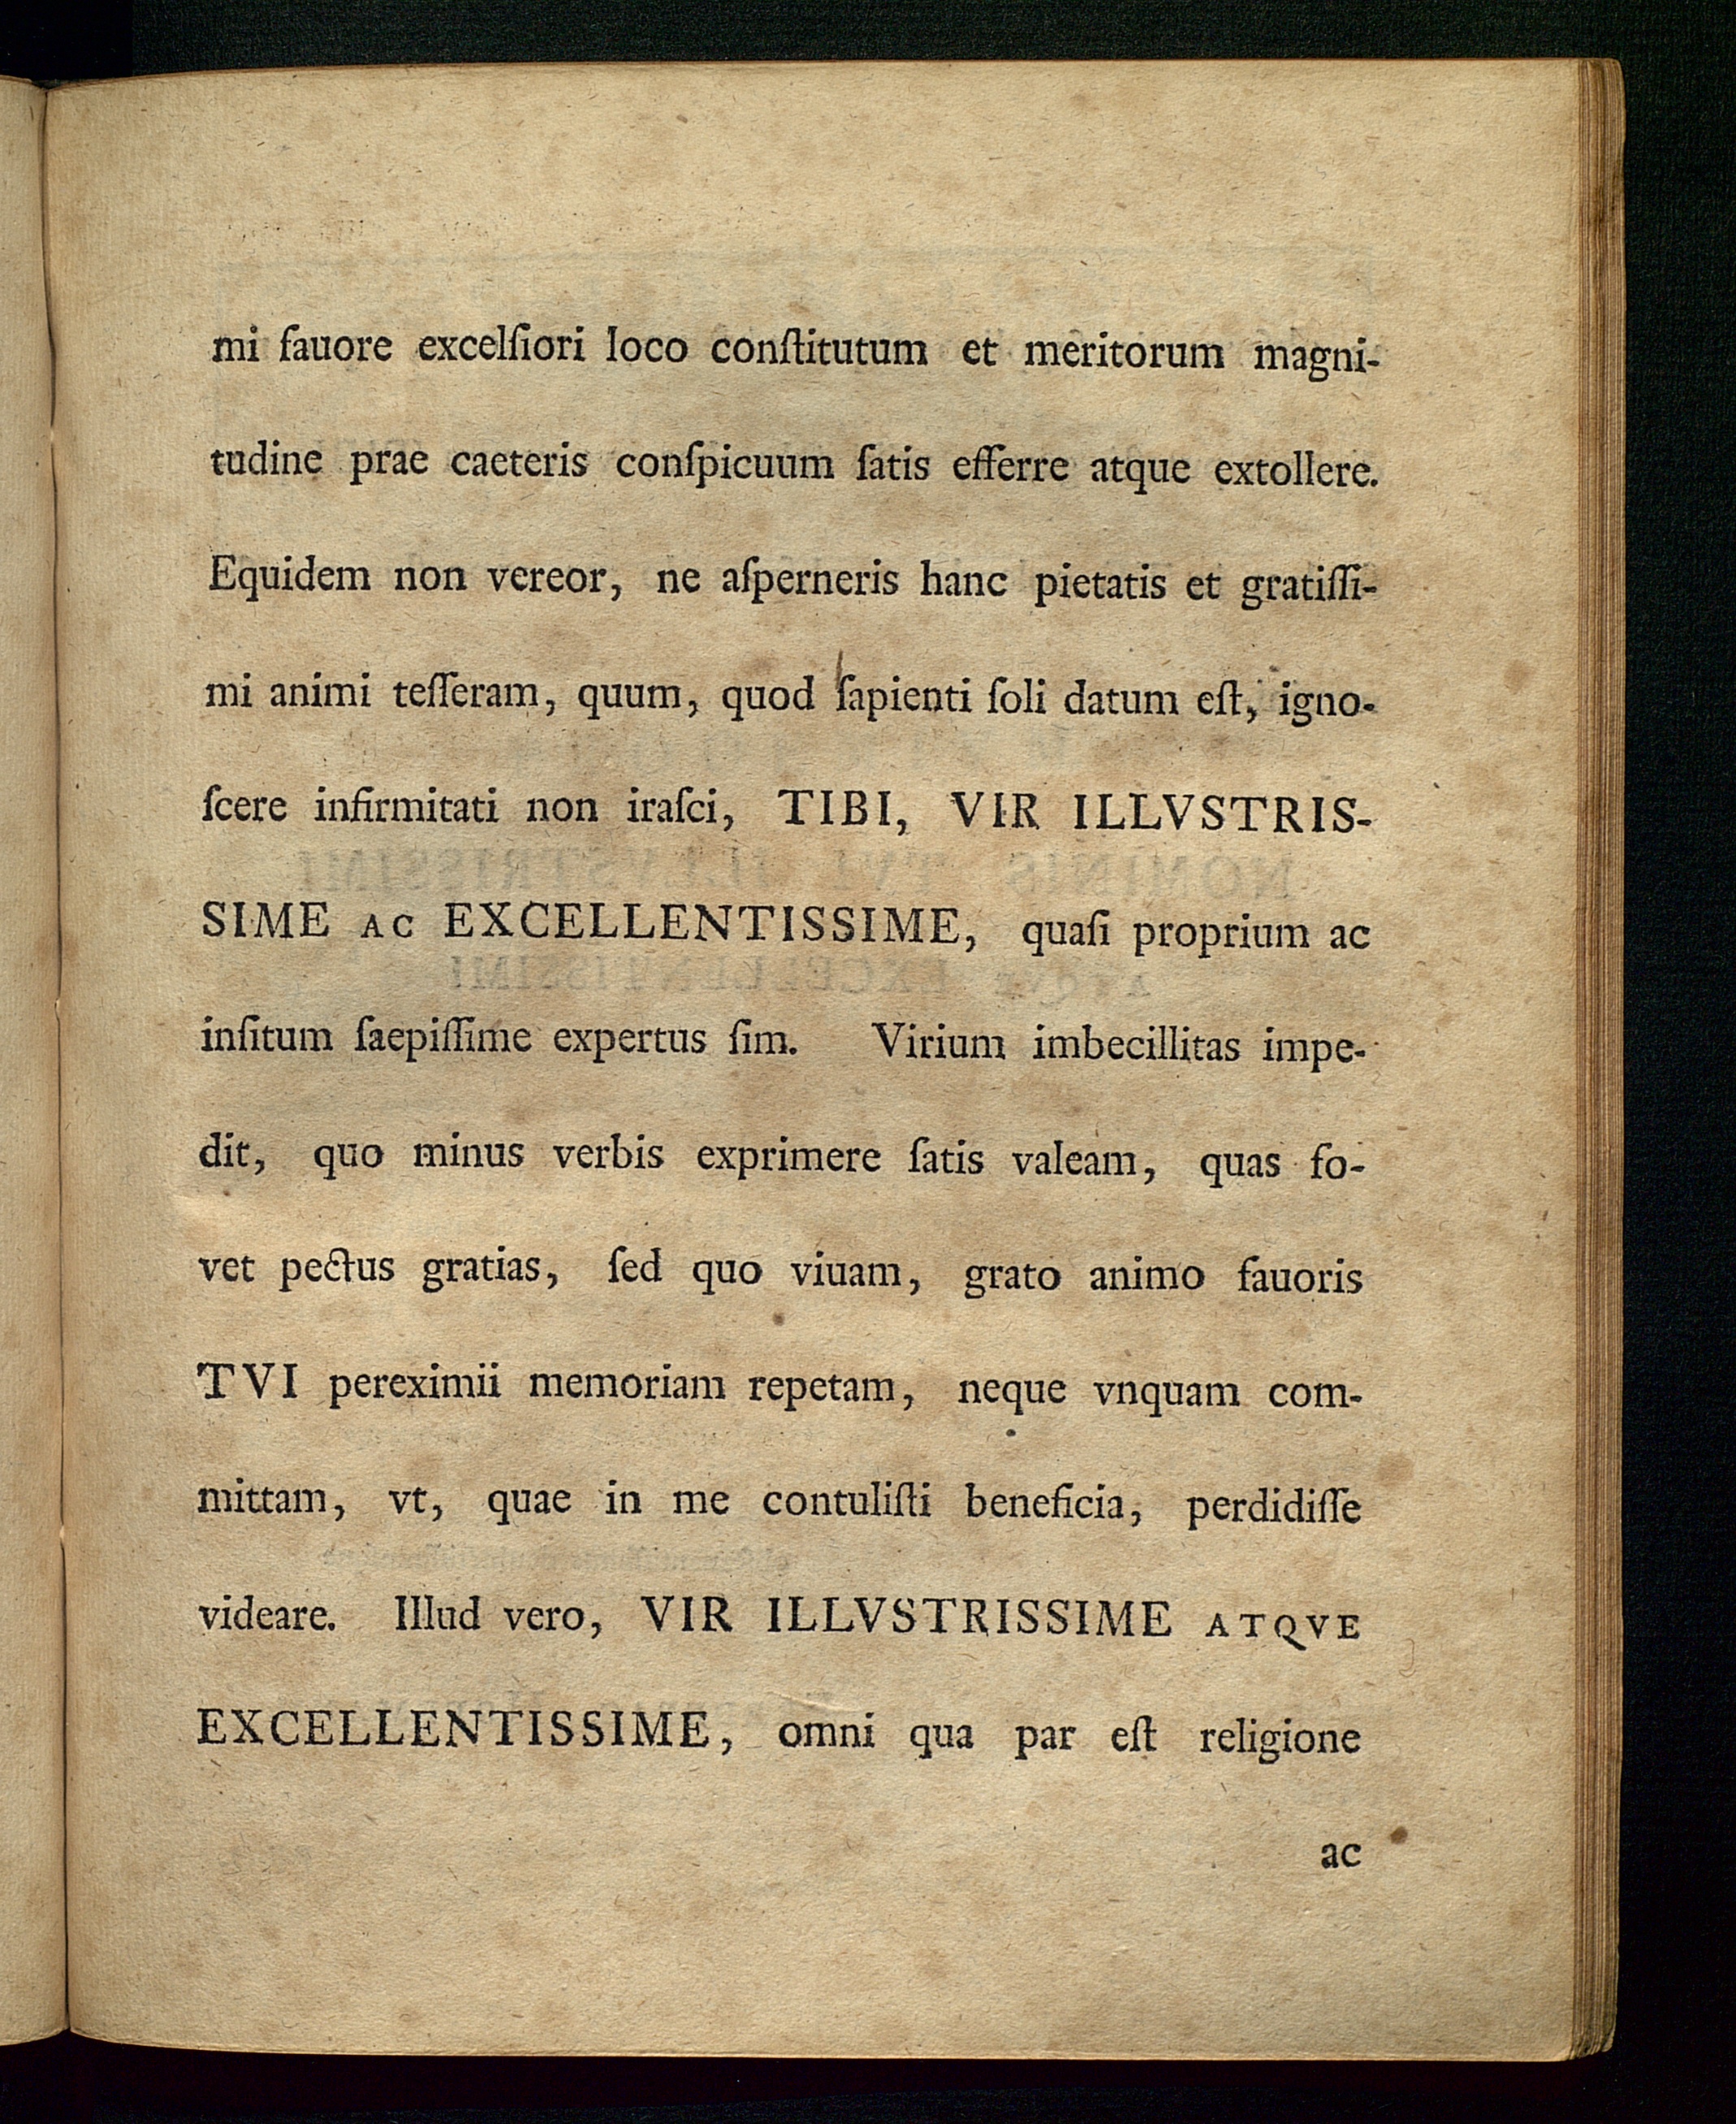 mi fauore excelſiori loco conſtitutum et meritorum magni-
tudine prae caeteris conſpicuum ſatis efferre atque extollere.
Equidem non vereor, ne aſperneris hanc pietatis et gratiſſi-
mi animi teſſeram, quum, quod ſapienti ſoli datum eſt, igno-
ſcere infirmitati non iraſci, TIBI, VIR ILLVSTRIS-
SIME AC EXCELLENTISSIME, quaſi proprium ac
inſitum ſaepiſſime expertus ſim. Virium imbecillitas impe-
dit, quo minus verbis exprimere ſatis valeam, quas fo-
vet pectus gratias, ſed quo viuam, grato animo fauoris
TVI pereximii memoriam repetam, neque vnquam com-
mittam, vt, quae in me contuliſti beneficia, perdidiſſe
videare. Illud vero, VIR ILLVSTRISSIME ATQVE
EXCELLENTISSIME, omni qua par eſt religione
ac